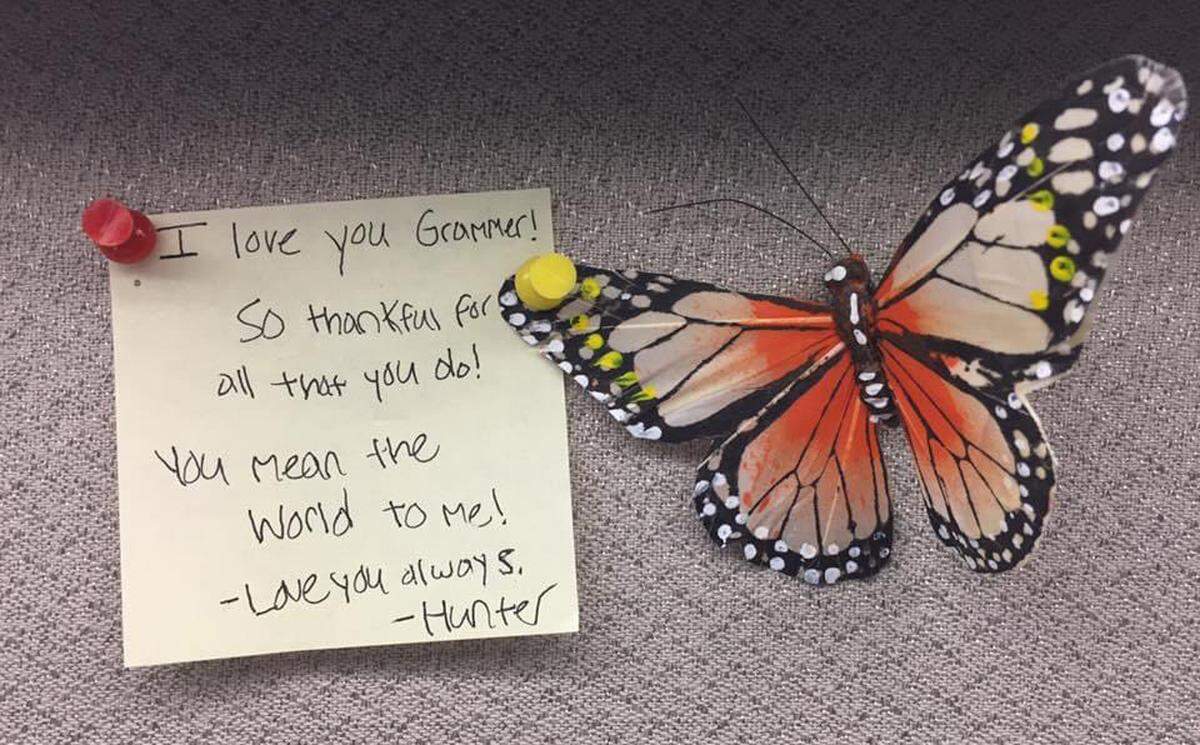 I love you Grammer!
So thankful for
all that you do!
You mean the
World to me!
-Love you always.
-Hunter